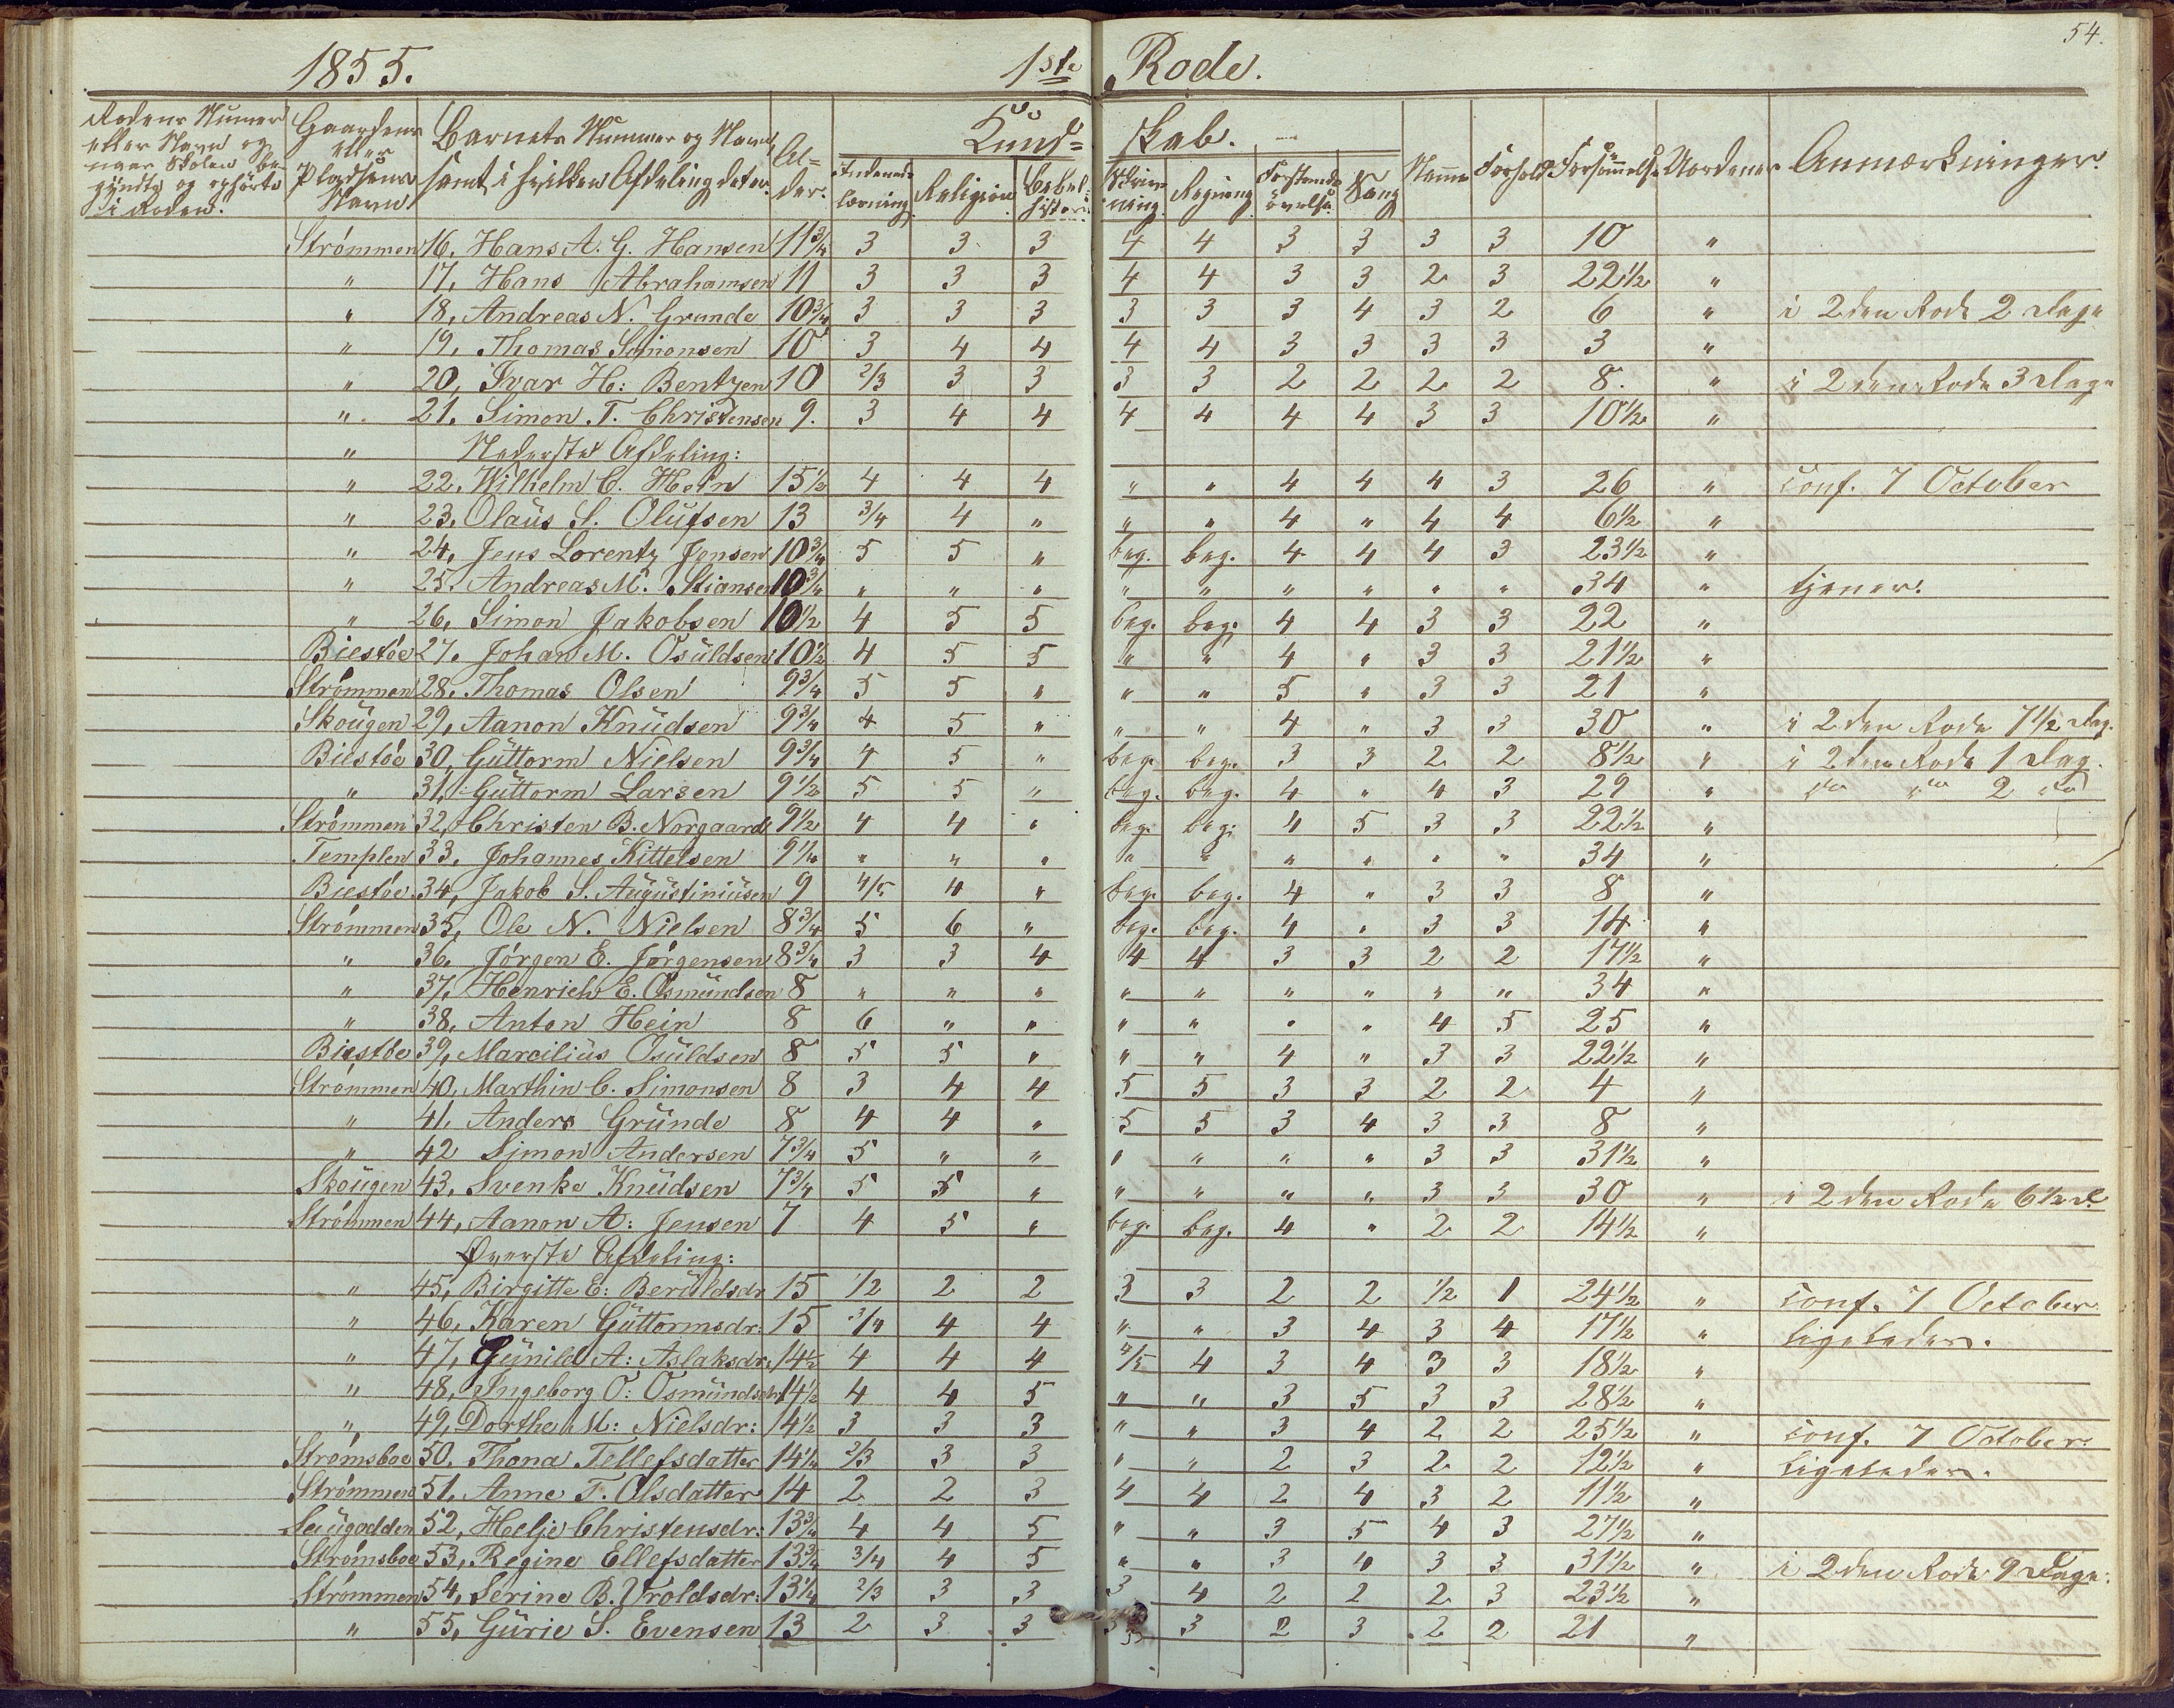 54.
1855. 1ste Rode.
Rodens Numer eller Navn og naar Skolen begyndte og ophörte i Roden.
Gaardens eller Pladsens Navn
Barnets Nummer og Navn samt i hvilken Afdeling det er.
Alder.
Kundskab.
Indenadslæsning Religion Bibelhistorie Skrivning Regning Forstandsövelse Sang Nemme Forhold Forsömmelse Uordener Anmærkninger.
Strømmen 16, Hans A. G. Hansen 11 3/4 3 3 3 4 4 3 3 3 3 10 "
" 17, Hans Abrahamsen 11 3 3 3 4 4 3 3 2 3 22 1/2 "
" 18, Andreas N. Grunde 10 3/4 3 3 3 3 3 3 4 3 2 6 " i 2den Rode 2 Dage
" 19, Thomas Simonsen 10 3 4 4 4 4 3 3 3 3 3 "
" 20, Ivar H: Bentzen 10 2/3 3 3 3 3 2 2 2 2 8. " i 2den Rode 3 Dage
" 21. Simon T. Christensen 9. 3 4 4 4 4 4 4 3 3 10 1/2 "
" Nederste Afdeling:
" 22. Wilhelm C. Hein 15 1/2 4 4 4 " " 4 4 4 3 26 " conf. 7 October
" 23. Olaüs S. Olüfsen 13 3/4 4 " " " 4 " 4 4 6 1/2 "
" 24, Jens Lorentz Jensen 10 3/4 5 5 " beg. beg. 4 4 4 3 23 1/2 "
" 25. Andreas M. Stiansen 10 3/4 " " " " " " " " " 34 " tjener.
" 26, Simon Jakobsen 10 1/2 4 5 5 beg. beg. 4 4 3 3 22 "
Biestøe 27. Johan M. Osüldsen 10 1/2 4 5 5 " " 4 " 3 3 21 1/2 "
Strømmen 28. Thomas Olsen 9 3/4 5 5 " " " 5 " 3 3 21 "
Skoügen 29, Aanon Knüdsen 9 3/4 4 5 " " " 4 " 3 3 30 " i 2den Rode 7 1/2 Dag.
Biestøe 30, Güttorm Nielsen 9 3/4 4 5 " beg. beg. 3 3 2 2 8 1/2 " i 2den Rode 1 Dag.
" 31, Güttorm Larsen 9 1/2 5 5 " beg. beg. 4 " 4 3 29 " do do 2 do
Strømmen 32, Christen B. Norgaard 9 1/2 4 4 " beg. beg. 4 5 3 3 22 1/2 "
Templen 33. Johannes Kittelsen 9 1/4 " " " " " " " " " 34 "
Biestøe 34, Jakob S. Augüstiniüsen 9 4/5 4 " beg. beg. 4 " 3 3 8 "
Strømmen 35, Ole N. Nielsen 8 3/4 5 6 " beg. beg. 4 " 3 3 14 "
" 36, Jørgen E. Jørgensen 8 3/4 3 3 4 4 4 3 3 2 2 17 1/2 "
" 37, Henrich E. Osmündsen 8 " " " " " " " " " 34 "
" 38, Anton Hein 8 6 " " " " " " 4 5 25 "
Biestøe 39, Marcilius Osüldsen 8 5 5 " " " 4 " 3 3 22 1/2 "
Strømmen 40, Marthin C. Simonsen 8 3 4 4 5 5 3 3 2 2 4 "
" 41, Anders Gründe 8 4 4 " 5 5 3 4 3 3 8 "
" 42 Simon Andersen 7 3/4 5 " " " " " " 3 3 31 1/2 "
Skoügen 43, Svenke Knüdsen 7 3/4 5 5 " " " " " 3 3 30 " i 2den Rode 6 1/2 D.
Strømmen 44, Aanon A: Jensen 7 4 5 " beg. beg. 4 " 2 2 14 1/2 "
Øverste Afdeling:
" 45, Birgitte E: Berüldsdr. 15 1/2 2 2 3 3 2 2 1/2 1 24 1/2 " conf. 7 October
" 46, Karen Güttormsdr: 15 3/4 4 4 " " 3 4 3 4 17 1/2 " ligeledes.
" 47, Günild A: Aslaksdr: 14 1/2 4 4 4 4/5 4 3 4 3 3 18 1/2 "
" 48, Ingeborg O: Osmündsdr. 14 1/2 4 4 5 " " 3 5 3 3 28 1/2 "
" 49, Dorthe M: Nielsdr: 14 1/2 3 3 3 " " 3 4 2 2 25 1/2 " conf. 7 October
Strømsboe 50. Thona Tellefsdatter 14 1/4 2/3 3 3 " " 2 3 2 2 12 1/2 " ligeledes.
Strømmen 51, Anne T. Olsdatter 14 2 2 3 4 4 2 4 3 2 11 1/2 "
52, Helje Christensdr: 13 3/4 4 4 5 " " 3 5 4 3 27 1/2 "
Strømsboe 53, Regine Ellefsdatter 13 3/4 3/4 4 5 " " 3 4 3 3 31 1/2 " i 2den Rode 9 Dage.
Strømmen 54, Serine B. Uroldsdr: 13 1/4 2/3 3 3 3 4 2 2 2 3 23 1/2 "
" 55, Gürie S. Evensen 13 2 3 3 3 2 3 2 2 21 "